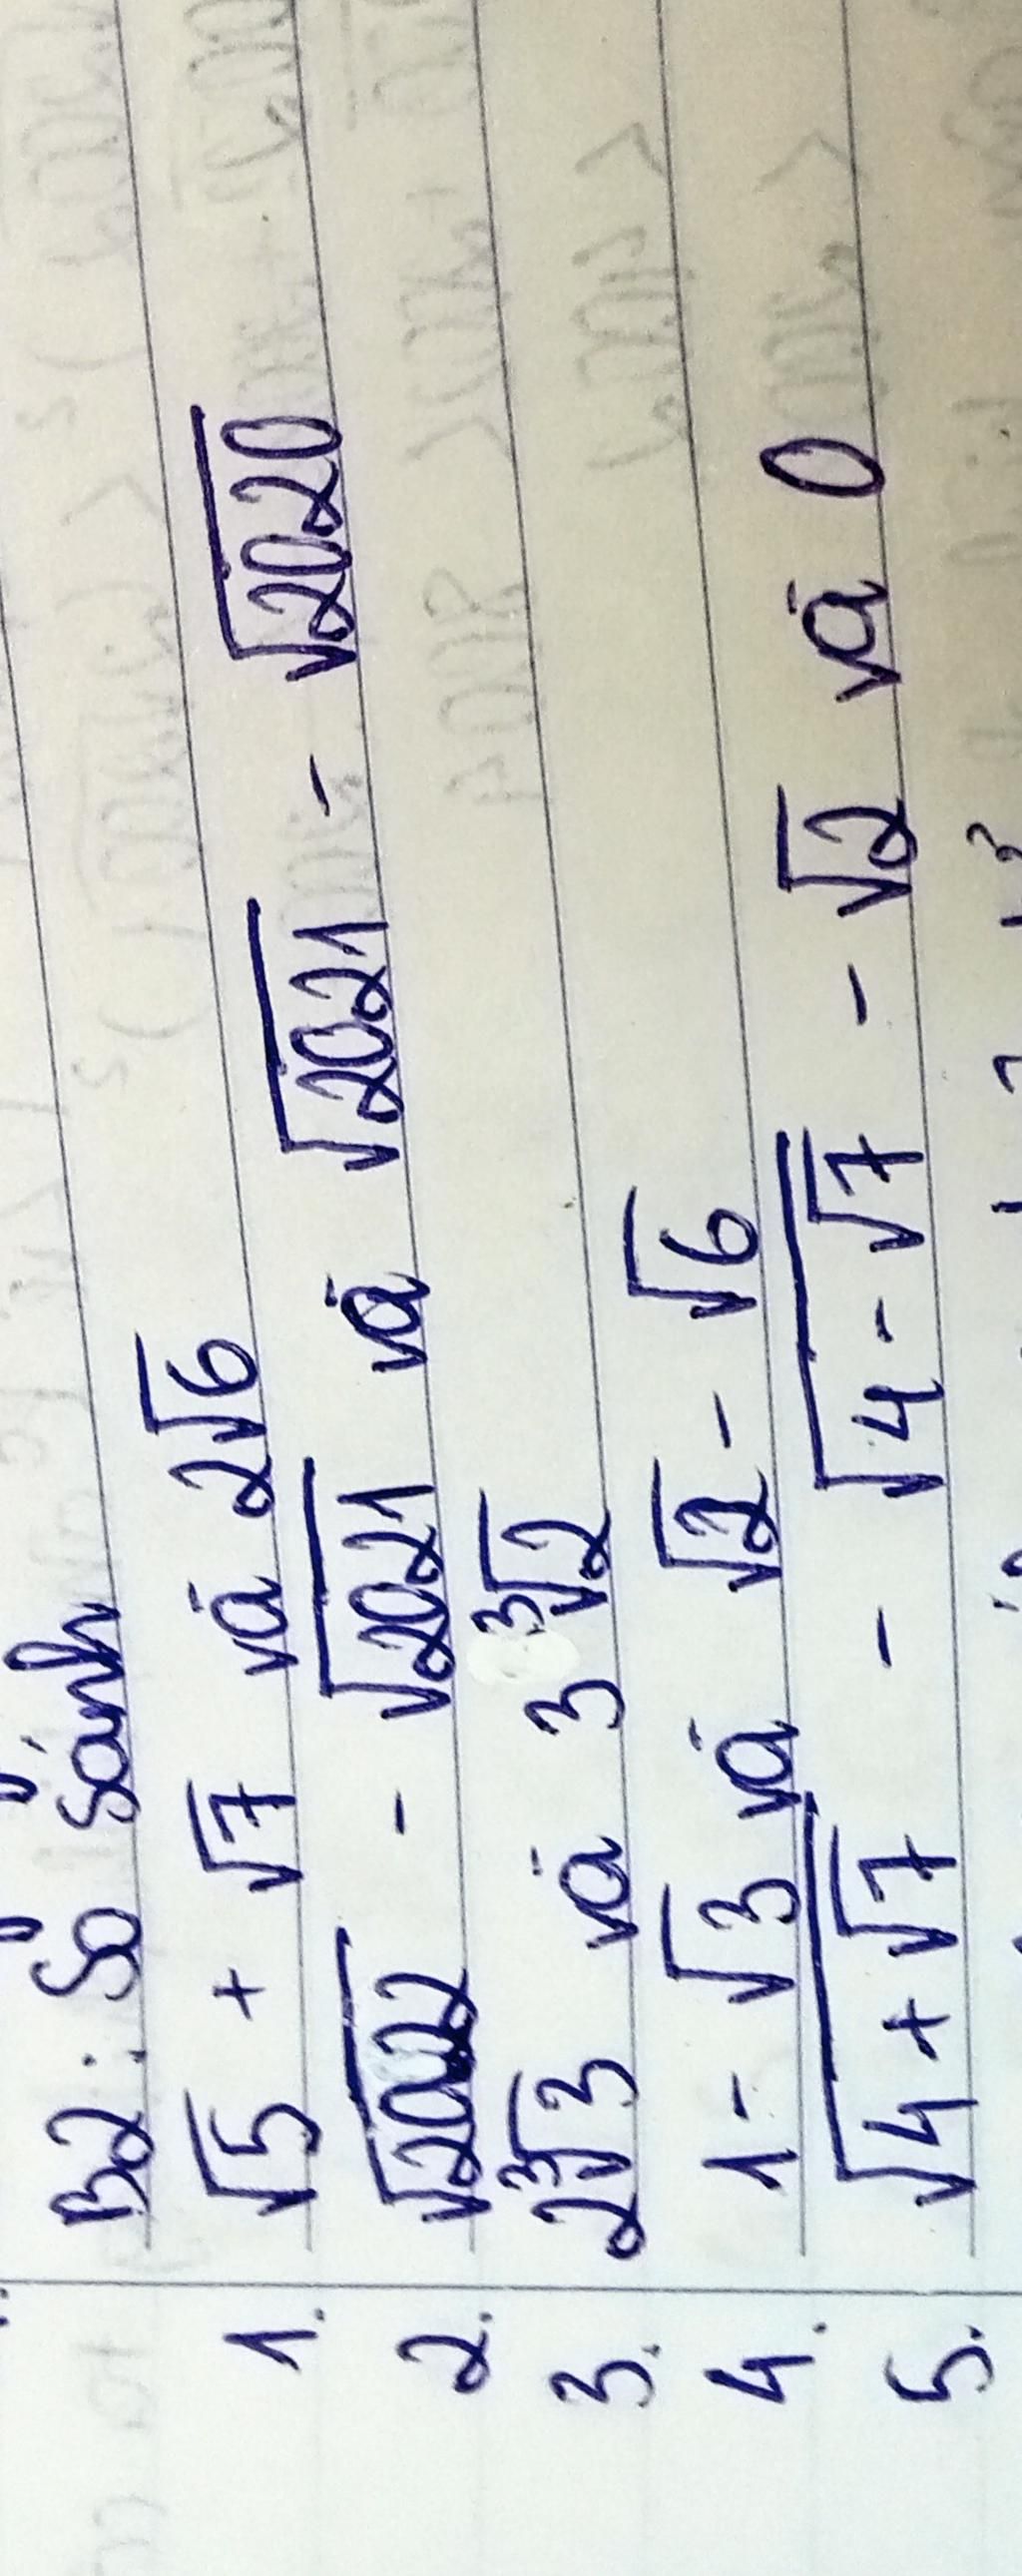 B2: So sánh
1. √5 + √7 và 2√6
2. √2022 - √2021 và √2021 - √2020
3. 2∛3 và 3∛2
4. 1 - √3 và √2 - √6
5. √(4 + √7) - √(4 - √7) - √2 và 0